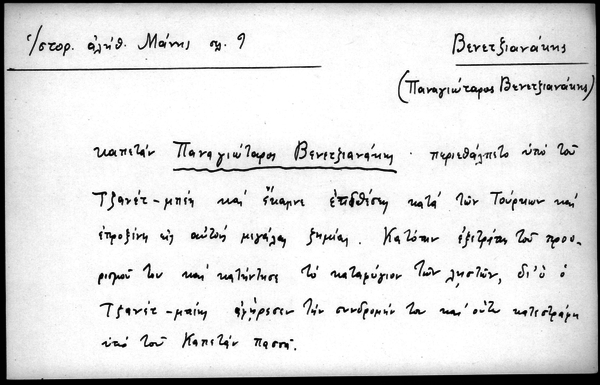 Ἱστορ. ἀλήθ. Μάνης σελ. 9
Βενετζιανάκης
(Παναγιώταρος Βενετζιανάκης)
καπετὰν Παναγιώταρος Βενετζιανάκης · περιεθάλπετο ὑπὸ τοῦ
Τζανέτ-μπέη καὶ ἔκαμνε ἐπιθέσεις κατὰ τῶν Τούρκων καὶ
ἐπροξένη εἰς αὐτοὺς μεγάλας ζημίας. Κατόπιν ἐξετράπη τοῦ προο-
ρισμοῦ του καὶ κατήντησε τὸ καταφύγιον τῶν ληστῶν, δι' ὃ ὁ
Τζανέτ-μπέης ἀφήρεσεν τὴν συνδρομήν του καὶ οὕτω κατεστράφη
ὑπὸ τοῦ Καπετὰν πασσᾶ.